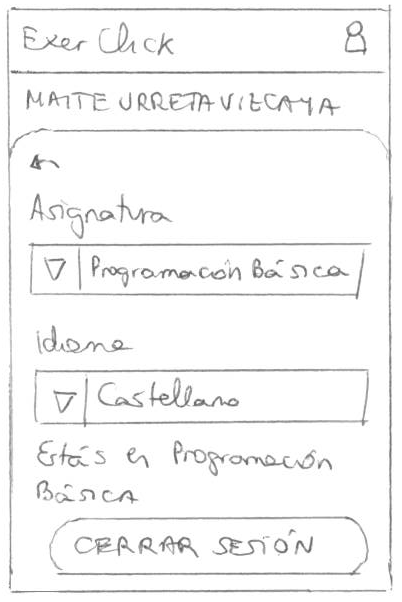 Exer Click
MAITE URRETAVIZCAYA
Asignatura
Programación Básica
idioma
Castellano
Estás en Programación
BÁSICA
CERRAR SESIÓN